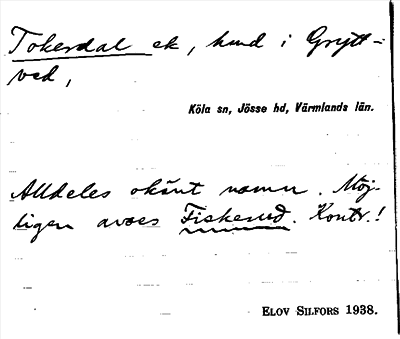 Tokerdal ek, hmd i Grytt-
ved,
Köla sn, Jösse hd, Värmlands län.
Alldeles okänt namn. Möj-
ligen avses Fiskerud. Kontr.!
ELOV SILFORS 1938.